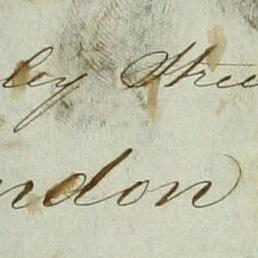 ley Stree
ndon